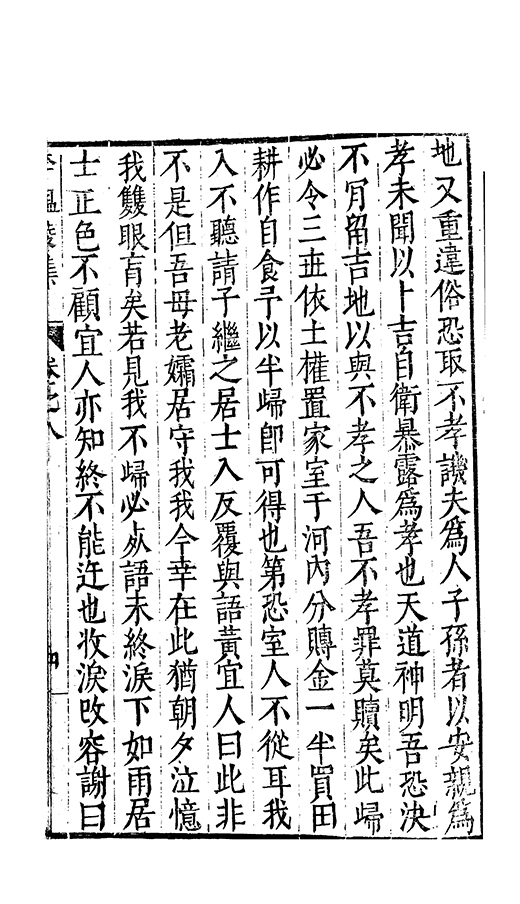 地又重違俗恐取不孝譏夫爲人子孫者以安親爲
孝未聞以卜吉自衛暴露爲孝也天道神明吾恐決
不肎留吉地以與不孝之人吾不孝罪莫贖矣此歸
必令三丗依土權置家室于河內分賻金一半買田
耕作自食予以半歸卽可得也第恐室人不從耳我
入不聽請子繼之居士入反覆與語黃宜人曰此非
不是但吾母老孀居守我我今幸在此猶朝夕泣憶
我雙眼盲矣若見我不歸必死語未終淚下如雨居
士正色不顧宜人亦知終不能迕也收淚改容謝曰
溫陵集
卷之八